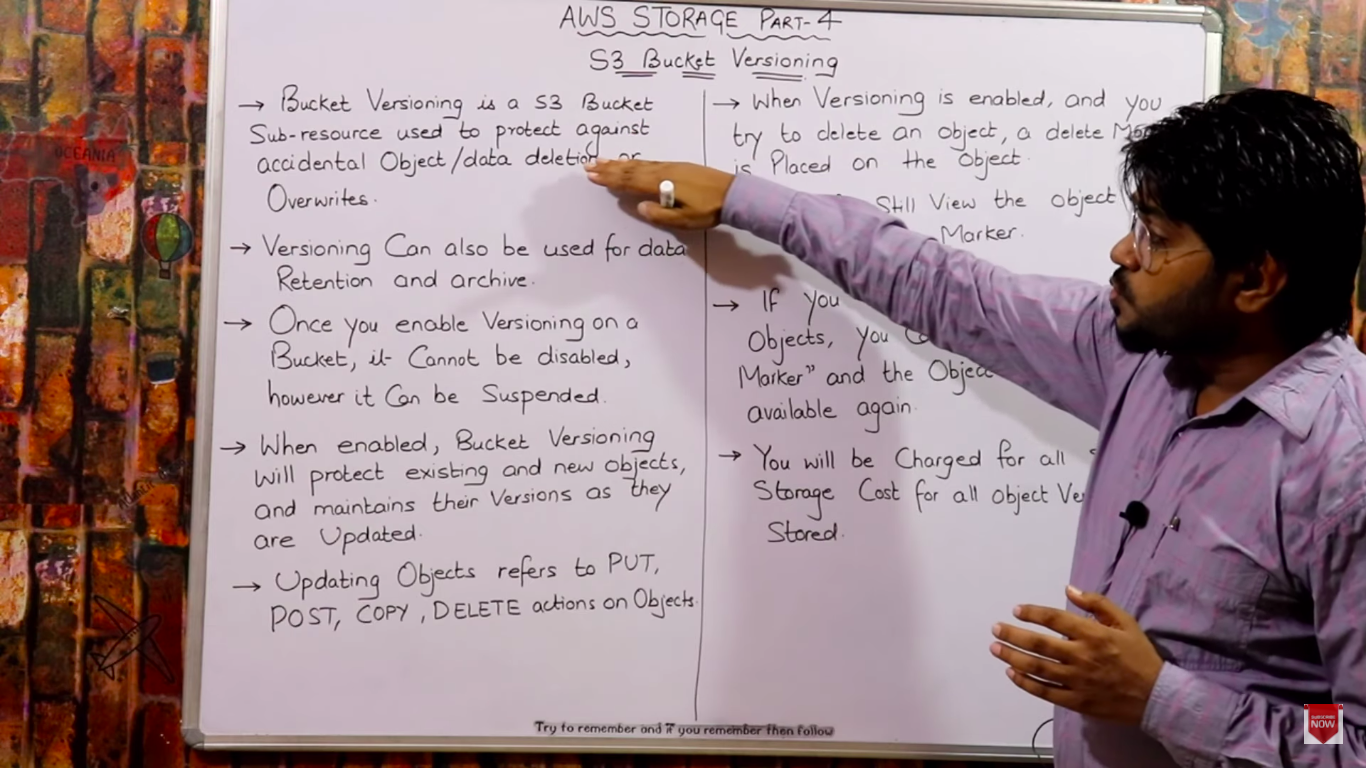 AWS STORAGE PART-4
S3 Bucket Versioning
→ Bucket Versioning is a S3 Bucket
Sub-resource used to protect against
accidental Object/data deletion or
Overwrites.
→ Versioning Can also be used for data
Retention and archive.
→ Once you enable Versioning on a
Bucket, it Cannot be disabled,
however it Can be Suspended.
→ When enabled, Bucket Versioning
Will protect existing and new objects,
and maintains their Versions as they
are Updated.
→ Updating Objects refers to PUT,
POST, COPY, DELETE actions on Objects.
→ When Versioning is enabled, and you
try to delete an object, a delete
is Placed on the Object.
Still View the object
Marker.
→ If you
Objects, you
Marker" and the
available again.
→ You will be Charged for all
Storage Cost for all object
Stored.
Try to remember and if you remember then follow
OCEANIA
SUBSCRIBE
NOW